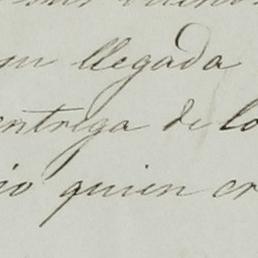 llegada
entrega de lo
io quien cr